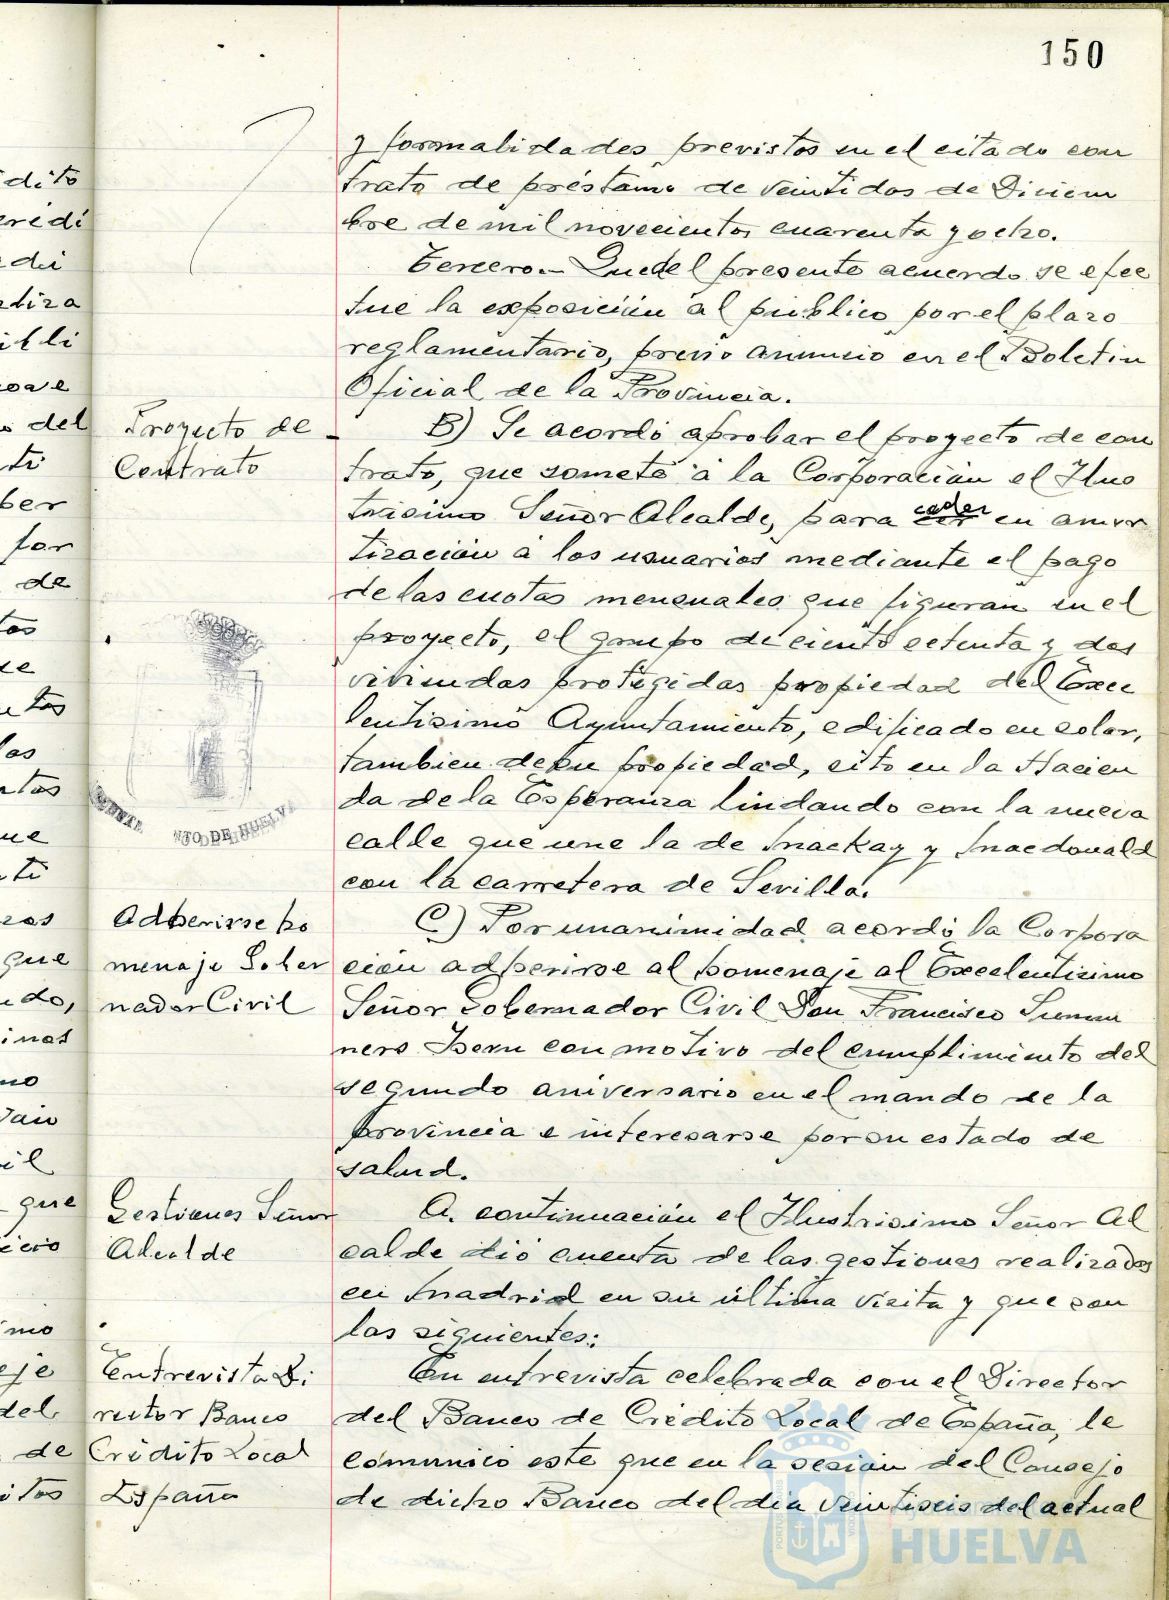 150
y formalidades previstos en el citado con
trato de préstamo de veintidos de Diciem
bre de mil novecientos cuarenta y ocho.
Tercero.- Que del presente acuerdo se efec
tue la exposición al público por el plazo
reglamentario, previo anuncio en el Boletin
Oficial de la Provincia.
Proyecto de
Contrato
B) Se acordó aprobar el proyecto de con
trato, que somete á la Corporación el Ilus
trisimo Señor Alcalde, para ceder en amor
tización á los usuarios mediante el pago
de las cuotas mensuales que figuran en el
proyecto, el grupo de ciento setenta y dos
viviendas protegidas propiedad del Exce
lentisimo Ayuntamiento, edificado en solar,
tambien de su propiedad, sito en la Hacien
da de la Esperanza lindando con la nueva
calle que une la de Mackay y Macdonald
con la carretera de Sevilla.
NTO DE HUELVA
Adherirse ho
menaje Gober
nador Civil
C) Por unanimidad acordó la Corpora
ción adherirse al homenaje al Excelentisimo
Señor Gobernador Civil Don Francisco Summ
ners Isern con motivo del cumplimiento del
segundo aniversario en el mando de la
provincia e interesarse por su estado de
salud.
Gestiones Señor
Alcalde
A continuación el Ilustrisimo Señor Al
calde dió cuenta de las gestiones realizadas
en Madrid en su última visita y que son
las siguientes:
Entrevista Di
rector Banco
Crédito Local
España
En entrevista celebrada con el Director
del Banco de Crédito Local de España, le
comunicó este que en la sesión del Consejo
de dicho Banco del dia veintiseis del actual
HUELVA